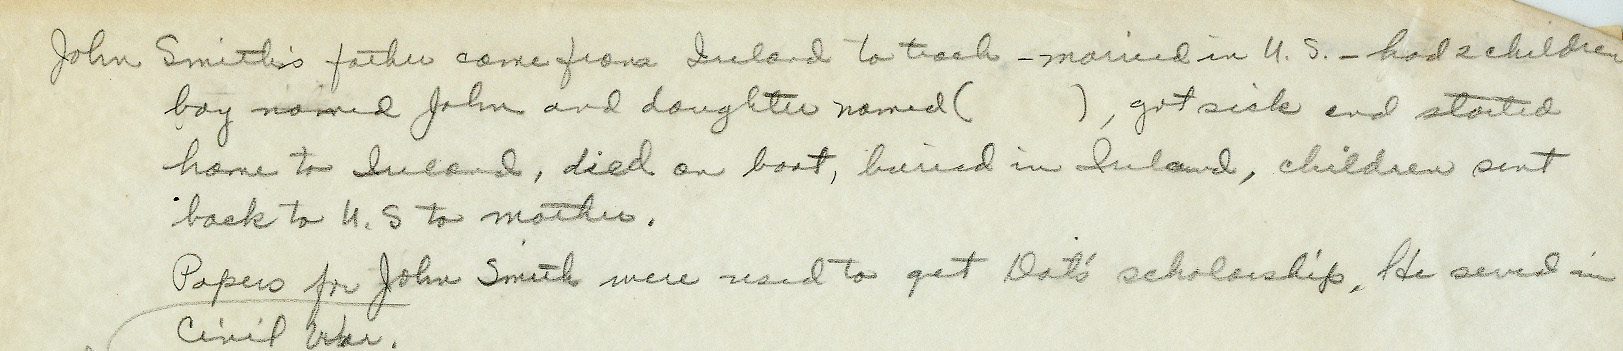 John Smith's father came from Ireland to teach - married in U.S. - had 2 children
boy named John and daughter named (          ), got sick and started
home to Ireland, died on boat, buried in Ireland, children sent
back to U.S to mother.
Papers for John Smith were used to get Dot's scholarship. He served in
Civil War.